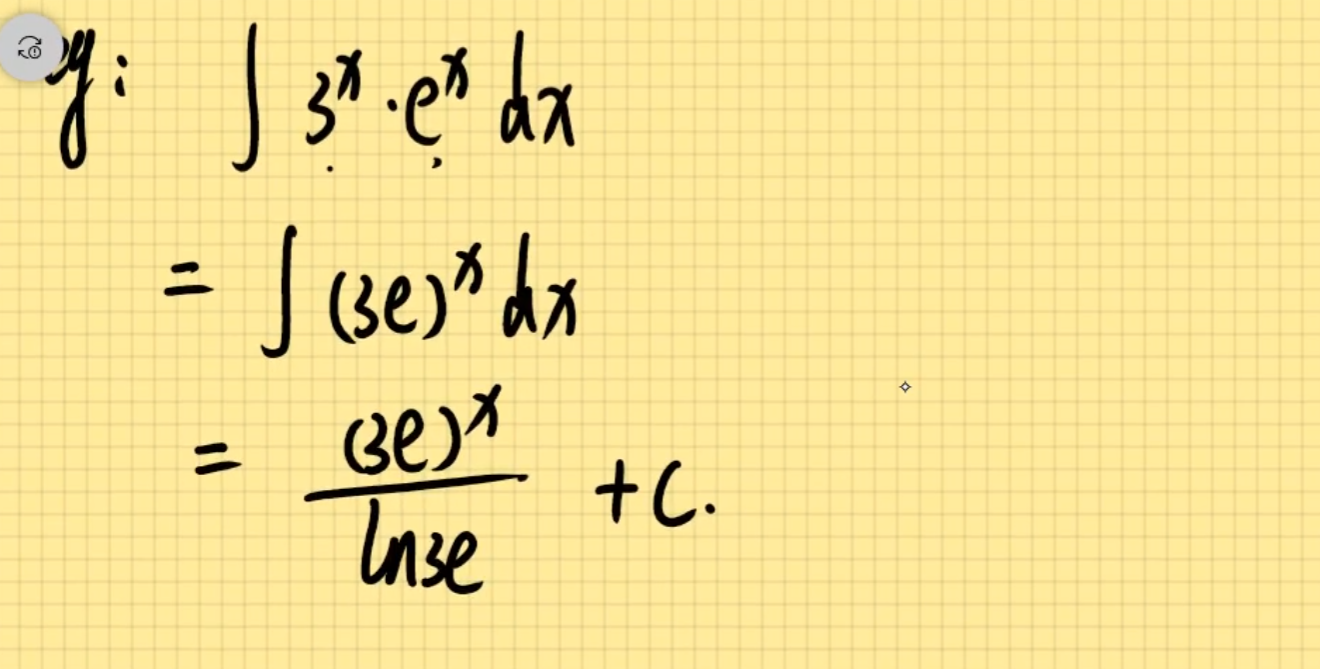 eg: ∫ 3^x · e^x dx
= ∫ (3e)^x dx
= (3e)^x / ln3e + C.